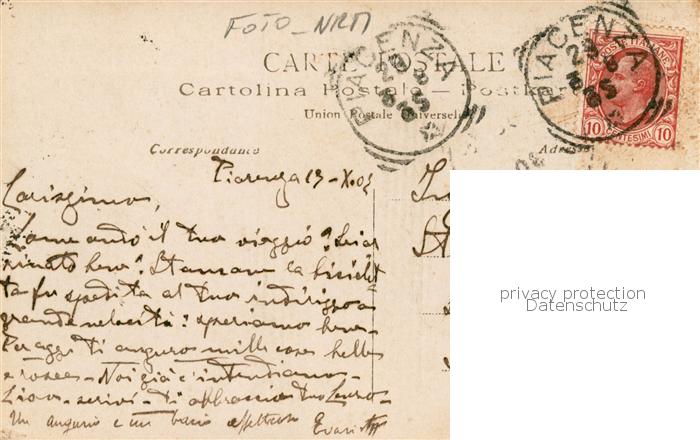 FOTO_NRM
CARTE POSTALE
Cartolina Postale – Postkar
Union Postale Universelle
Correspondance
Adress
PIACENZA
PIACENZA
POSTE ITALIANE
10 CENTESIMI 10
Piacenza 29-X.05
Carissimo,
Come andò il tuo viaggio? Sei ar
rivato bene? Stamane la biciclet
ta fu spedita al tuo indirizzo a
grande velocità: speriamo bene.
Per oggi ti auguro mille cose belle
e rosee. Noi già c'intendiamo.
Ciao - scrivi - ti abbraccia tuo
Un augurio e un bacio affettuoso
privacy protection
Datenschutz